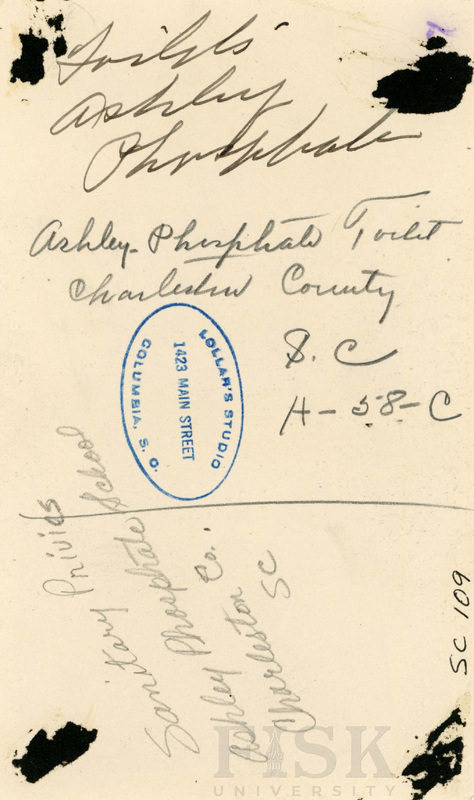 Toilets
Ashley
Phosphate
Ashley-Phosphate Toilet
Charleston County
S. C
H-58-C
LOLLAR'S STUDIO
1423 MAIN STREET
COLUMBIA, S. C.
Sanitary Privies
Phosphate School
Ashley Co.
Charleston SC
SC 109
FISK
UNIVERSITY